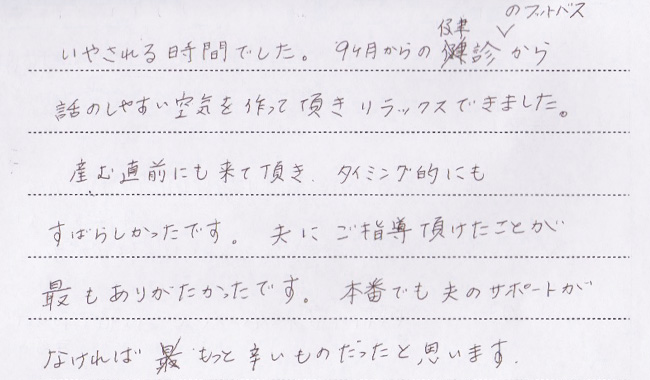 のフットバス
いやされる時間でした。 9ヶ月からの健診から
話のしやすい空気を作って頂きリラックスできました。
産む直前にも来て頂き、タイミング的にも
すばらしかったです。 夫にご指導頂けたことが
最もありがたかったです。 本番でも夫のサポートが
なければもっと辛いものだったと思います。